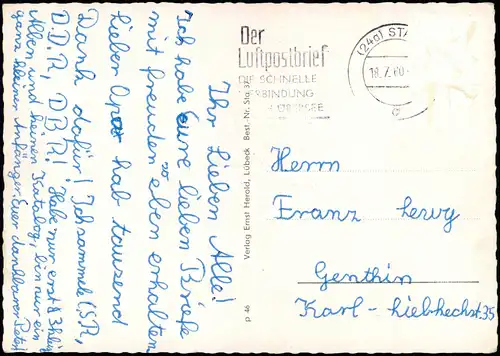 Ihr Lieben Alle!
Ich habe eure lieben Briefe
mit freuden so eben erhalten
lieber Opa hab tausend
Dank dafür! Ich sammele CSR,
D.D.R, D.B.R! Habe nur erst
Alben und keinen Katalog, bin nur ein
ganz kleiner Anfänger. Euer dankbarer Peter
Der
Luftpostbrief
DIE SCHNELLE
VERBINDUNG
ÜBERSEE
(24a) STA
18.7.60
Verlag Ernst Herold, Lübeck Best.-Nr. Sta 3
p 46
Herrn
Franz
Genthin
Karl-Liebknechst. 35